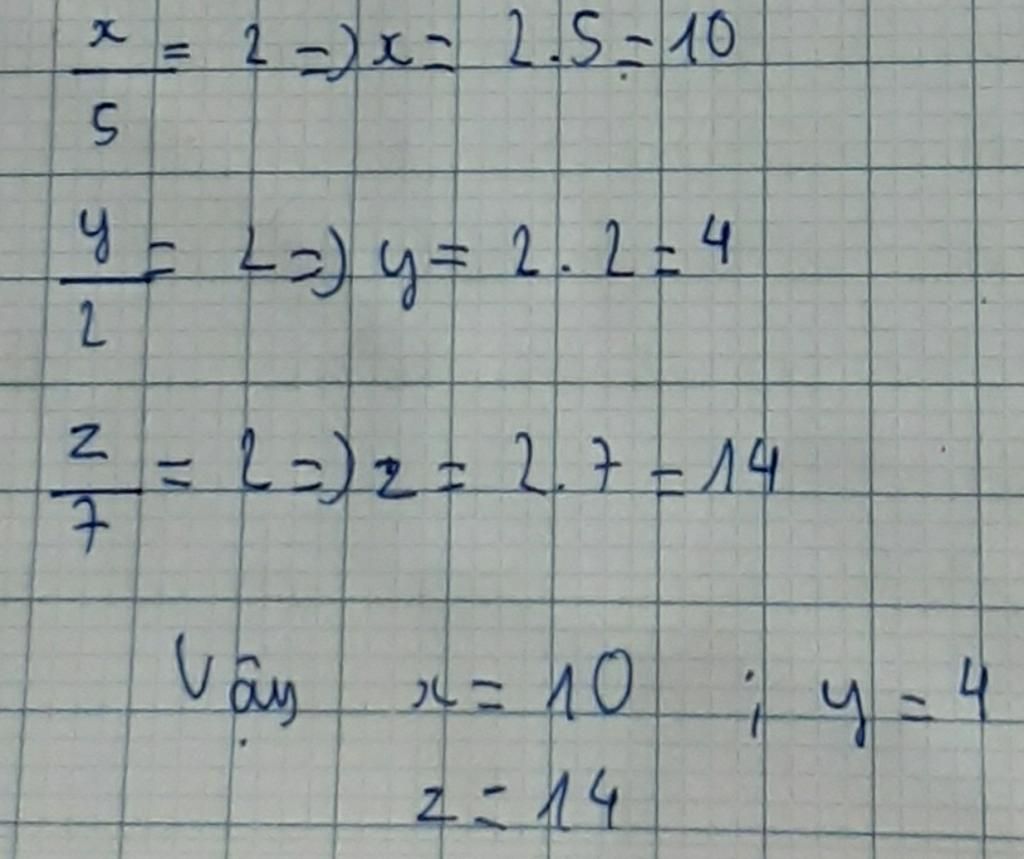 x/5 = 2 => x = 2.5 = 10
y/2 = 2 => y = 2.2 = 4
z/7 = 2 => z = 2.7 = 14
Vậy x = 10 ; y = 4
z = 14